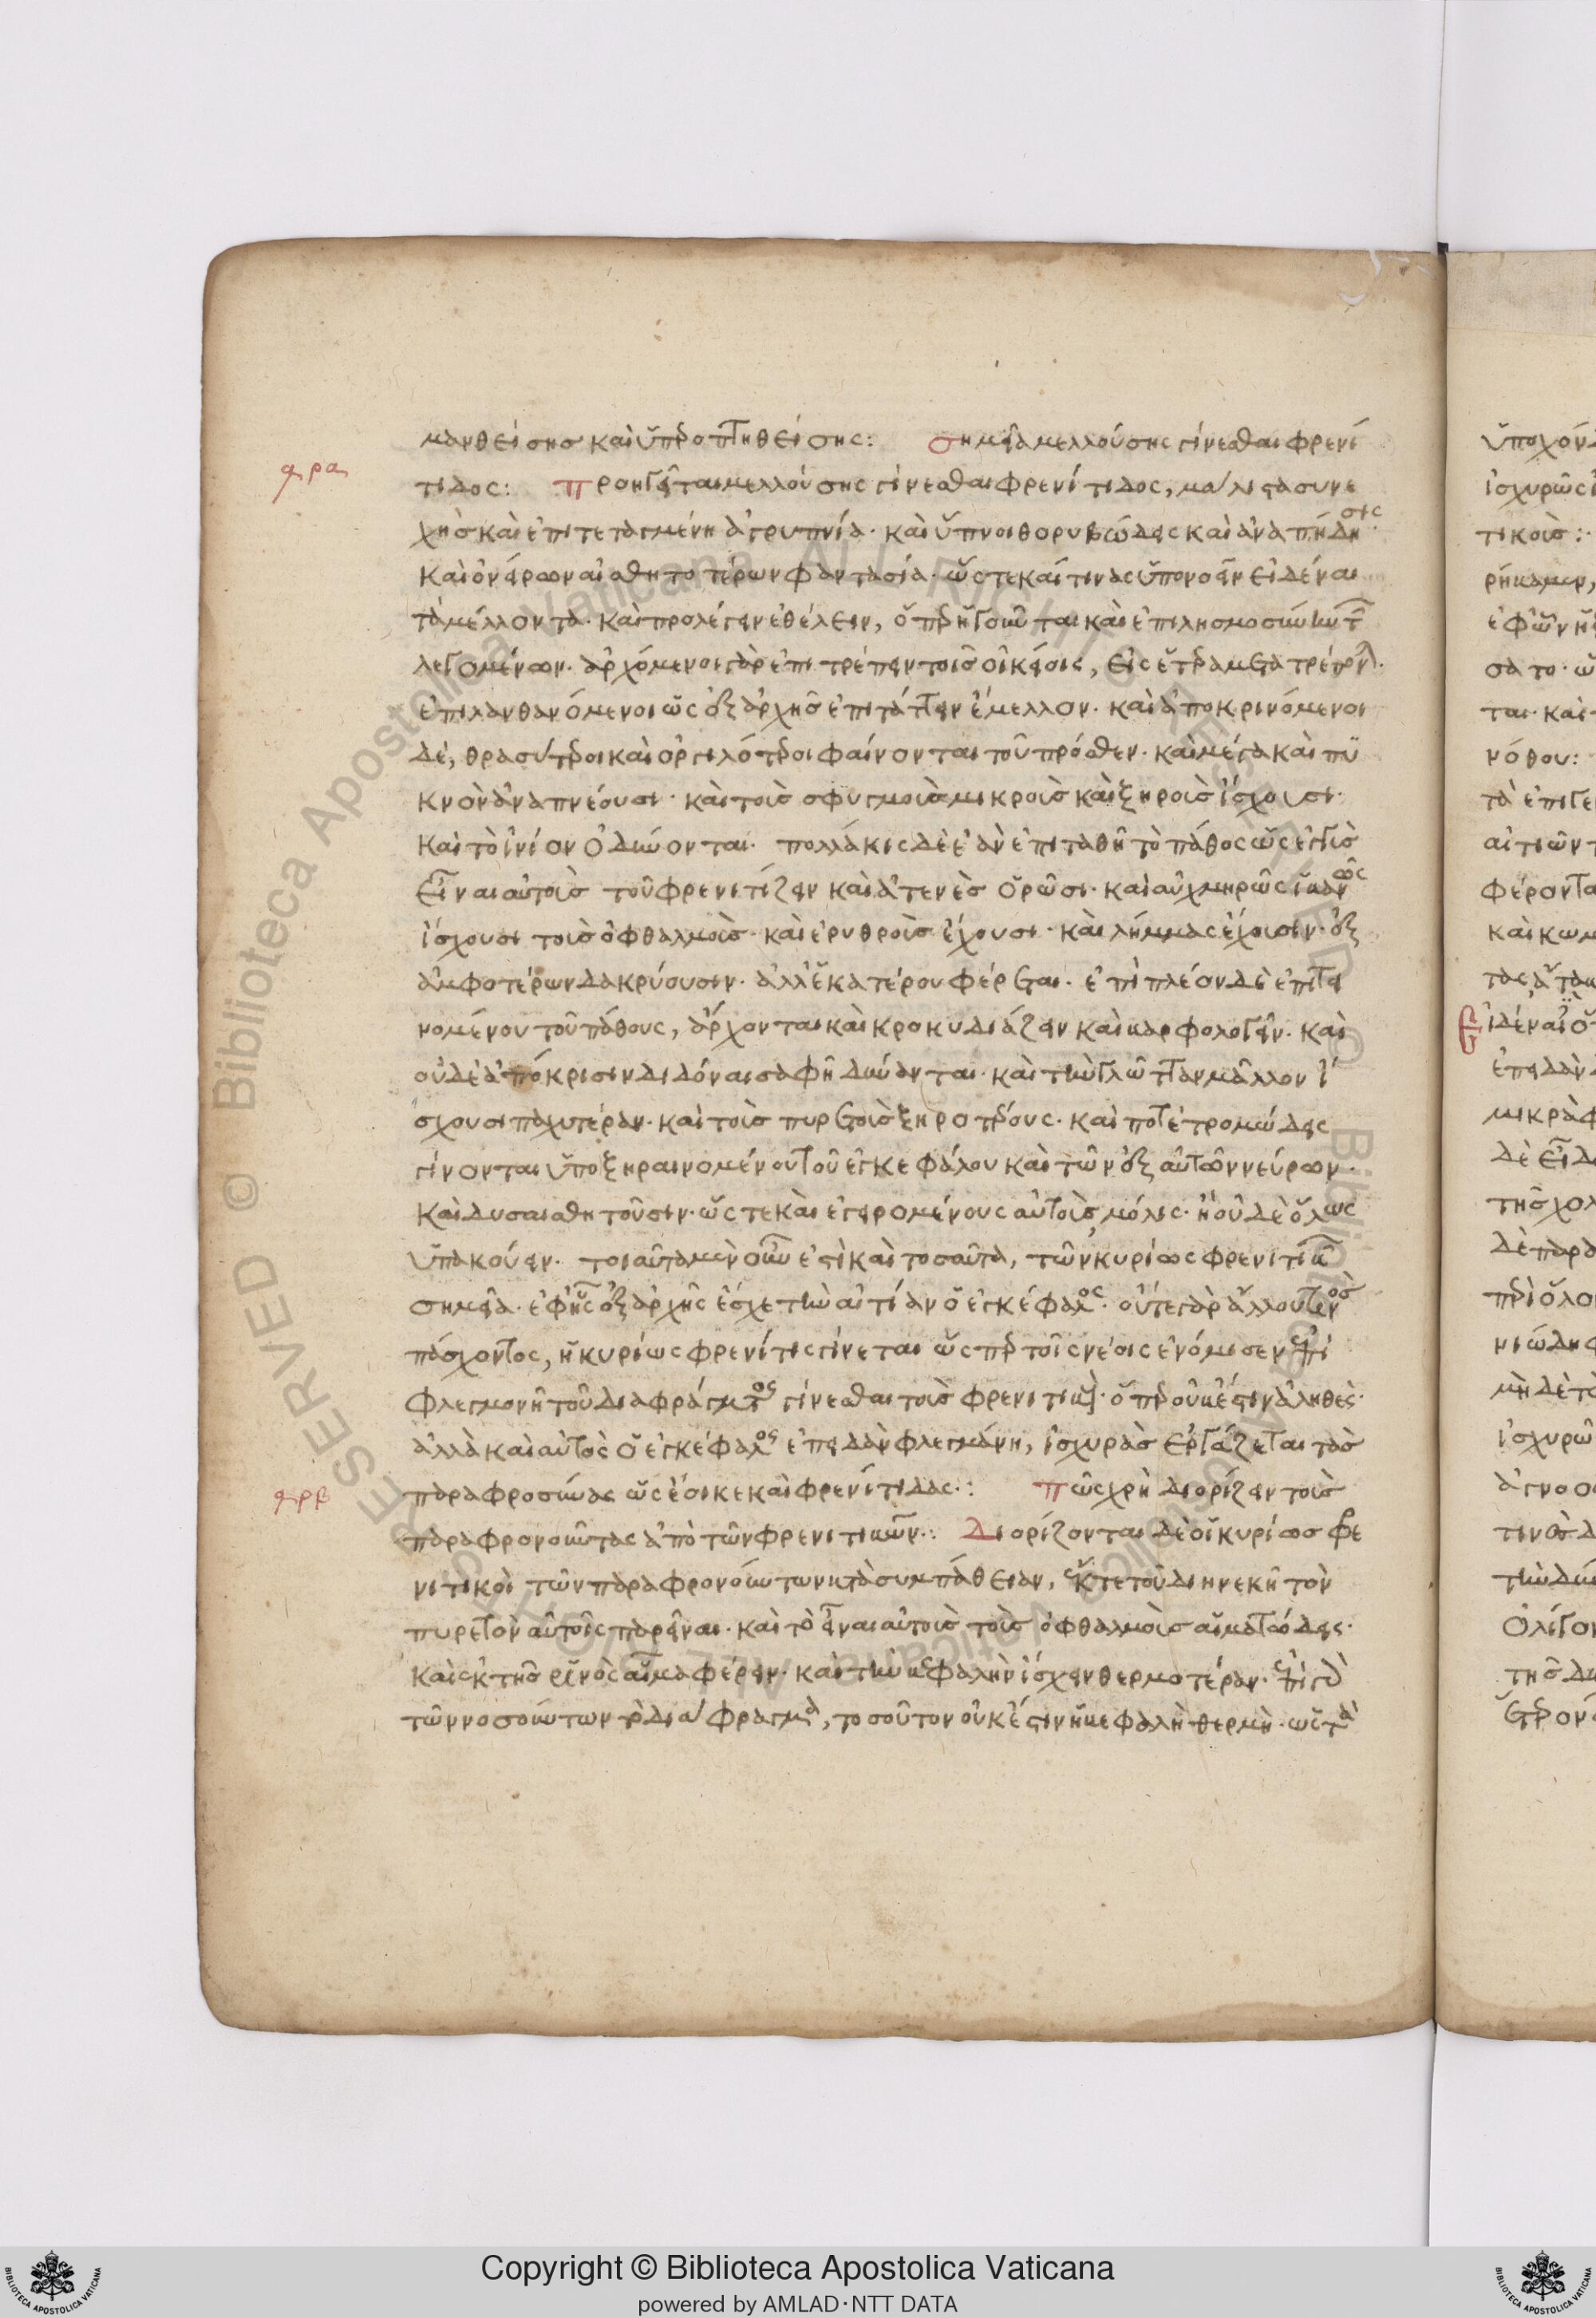 μανθείσης καὶ ὑπεροπτηθείσης: σημεῖα μελλούσης γίνεσθαι φρενί
ρα
τιδος: προηγεῖται μελλούσης γίνεσθαι φρενίτιδος, μάλιστα συνε
χὴς καὶ ἐπιτεταγμένη ἀγρυπνία· καὶ ὕπνοι θορυβώδεις καὶ ἀναπήδησις·
καὶ ὀνείρων αἰσθητοτέρων φαντασία· ὥστε καί τινας ὑπονοεῖν εἰδέναι
τὰ μέλλοντα· καὶ προλέγειν ἐθέλειν, ὅπερ ἡγοῦνται καὶ ἐπιλησμοσύνην τ
λεγομένων· ἀρχόμενοι γὰρ ἐπιτρέπειν τοῖς οἰκείοις, εἰς ἕτερα μετατρέπον
ἐπιλανθανόμενοι ὡς ἐξ ἀρχῆς ἐπιτάττειν ἔμελλον· καὶ ἀποκρινόμενοι
δέ, θρασύτεροι καὶ ὀργιλότεροι φαίνονται τοῦ πρόσθεν· καὶ μέγα καὶ πυ
κνὸν ἀναπνέουσι· καὶ τοὺς σφυγμοὺς μικροὺς καὶ ξηροὺς ἴσχουσι·
καὶ τὸ ἰνίον ὀδυνῶνται· πολλάκις δὲ ἐὰν ἐπιταθῇ τὸ πάθος ὡς ἐγγὺς
εἶναι αὐτοὺς τοῦ φρενιτίζειν καὶ ἀτενὲς ὁρῶσι· καὶ αὐχμηροὺς ἱκανῶς
ἴσχουσι τοὺς ὀφθαλμοὺς· καὶ ἐρυθροὺς ἔχουσι· καὶ λήμμας ἔχουσιν· ἐξ
ἀμφοτέρων δακρύουσιν· ἀλλ' ἑκατέρου φέρεται· ἐπὶ πλέον δὲ ἐπιτει
νομένου τοῦ πάθους, ἄρχονται καὶ κροκυδιάζειν καὶ καρφολογεῖν· καὶ
οὐδὲ ἀπόκρισιν διδόναι σαφῆ δύνανται· καὶ τὴν γλῶτταν μᾶλλον ἴ
σχουσι παχυτέραν· καὶ τοὺς πυρετοὺς ξηροτέρους· καὶ ποτὲ τρομώδεις
γίνονται ὑποξηραινομένου τοῦ ἐγκεφάλου καὶ τῶν ἐξ αὐτοῦ νεύρων·
καὶ δυσαισθητοῦσιν· ὥστε καὶ ἐγειρομένους αὐτοὺς μόλις· ἢ οὐδὲ ὅλως
ὑπακούειν· τοιαῦτα μὲν οὖν ἐστὶ καὶ τοσαῦτα, τῶν κυρίως φρενιτικ
σημεῖα· ἐφ' ἧς ἐξ ἀρχῆς ἔσχε τὴν αἰτίαν ὁ ἐγκέφαλος· οὔτε γὰρ ἄλλου τινὸς
πάσχοντος, ἡ κυρίως φρενίτις γίνεται ὥς περ τοῖς νέοις ἐνόμισεν ἐπὶ
φλεγμονῇ τοῦ διαφράγματος γίνεσθαι τοὺς φρενιτικ· ὅπερ οὐκ ἔστιν ἀληθὲς·
ἀλλὰ καὶ αὐτὸς ὁ ἐγκέφαλος ἐπειδὰν φλεγμάνῃ, ἰσχυρὰς ἐργάζεται τὰς
ρβ
παραφροσύνας ὡς ἔοικε καὶ φρενίτιδας: πῶς χρὴ διορίζειν τοὺς
παραφρονοῦντας ἀπὸ τῶν φρενιτικῶν: Διορίζονται δὲ οἱ κυρίως φρε
νιτικοὶ τῶν παραφρονούντων κατὰ συμπάθειαν, ἔκ τε τοῦ διηνεκῆ τὸν
πυρετὸν αὐτοῖς παρεῖναι· καὶ τὸ εἶναι αὐτοὺς τοὺς ὀφθαλμοὺς αἱματώδεις·
καὶ ἐκ τῆς ῥινὸς αἷμα φέρειν· καὶ τὴν κεφαλὴν ἴσχειν θερμοτέραν· ἐπὶ γὰρ
τῶν νοσούντων τὸ διάφραγμα, τοσοῦτον οὐκ ἔστιν ἡ κεφαλὴ θερμὴ·
Copyright © Biblioteca Apostolica Vaticana
powered by AMLAD·NTT DATA